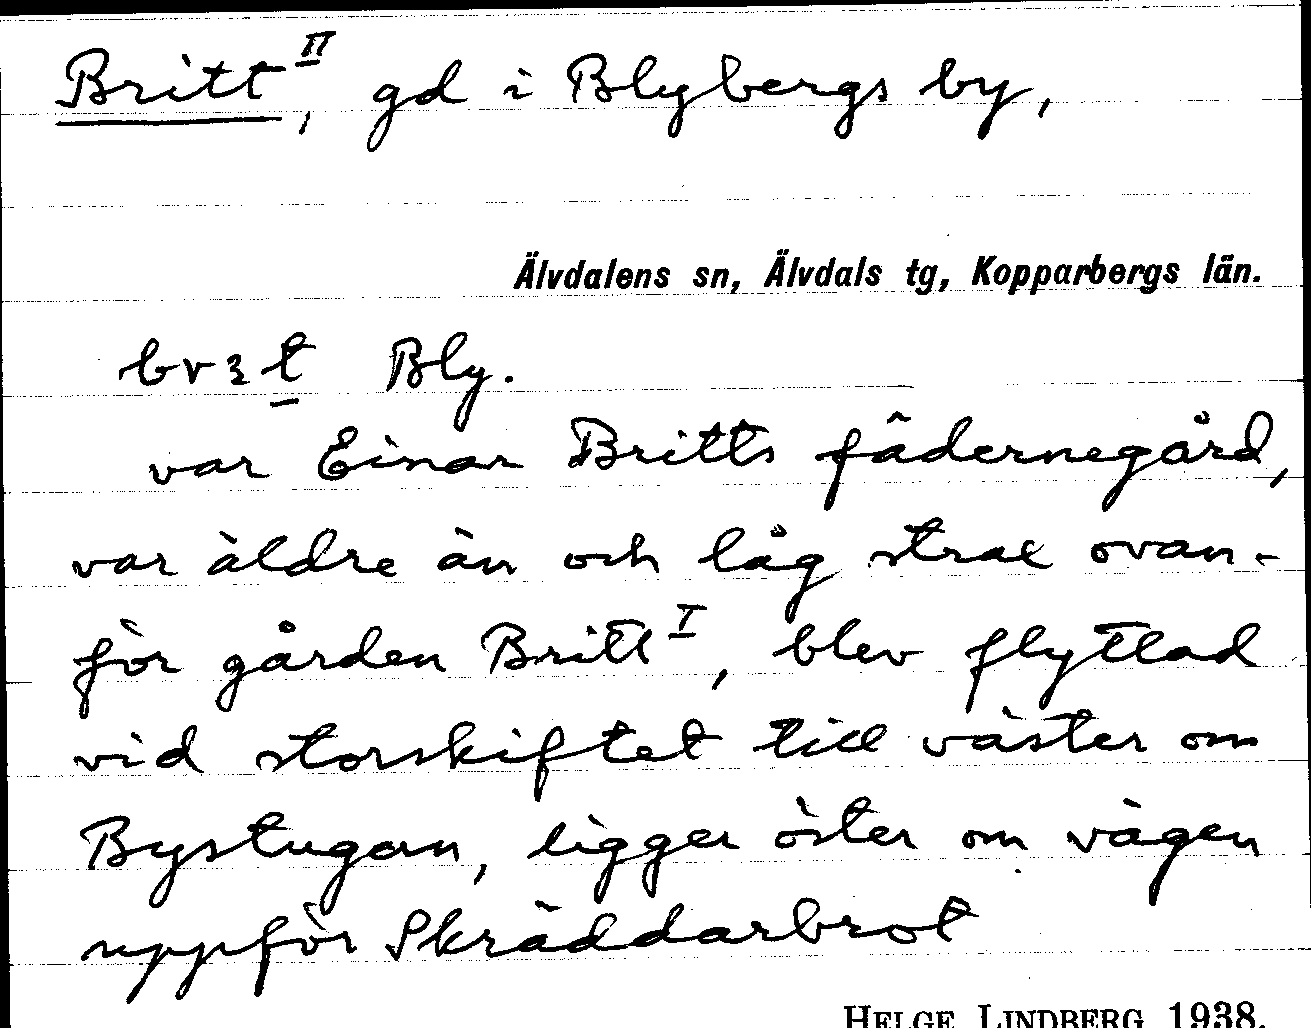 Britt II, gd i Blybergs by,
Älvdalens sn, Älvdals tg, Kopparbergs län.
Bly.
var Einar Britts fädernegård,
var äldre än och låg strax ovan-
för gården Britt I, blev flyttad
vid storskiftet till väster om
Bystugan, ligger öster om vägen
uppför Skräddarbrot
HELGE LINDBERG 1938.